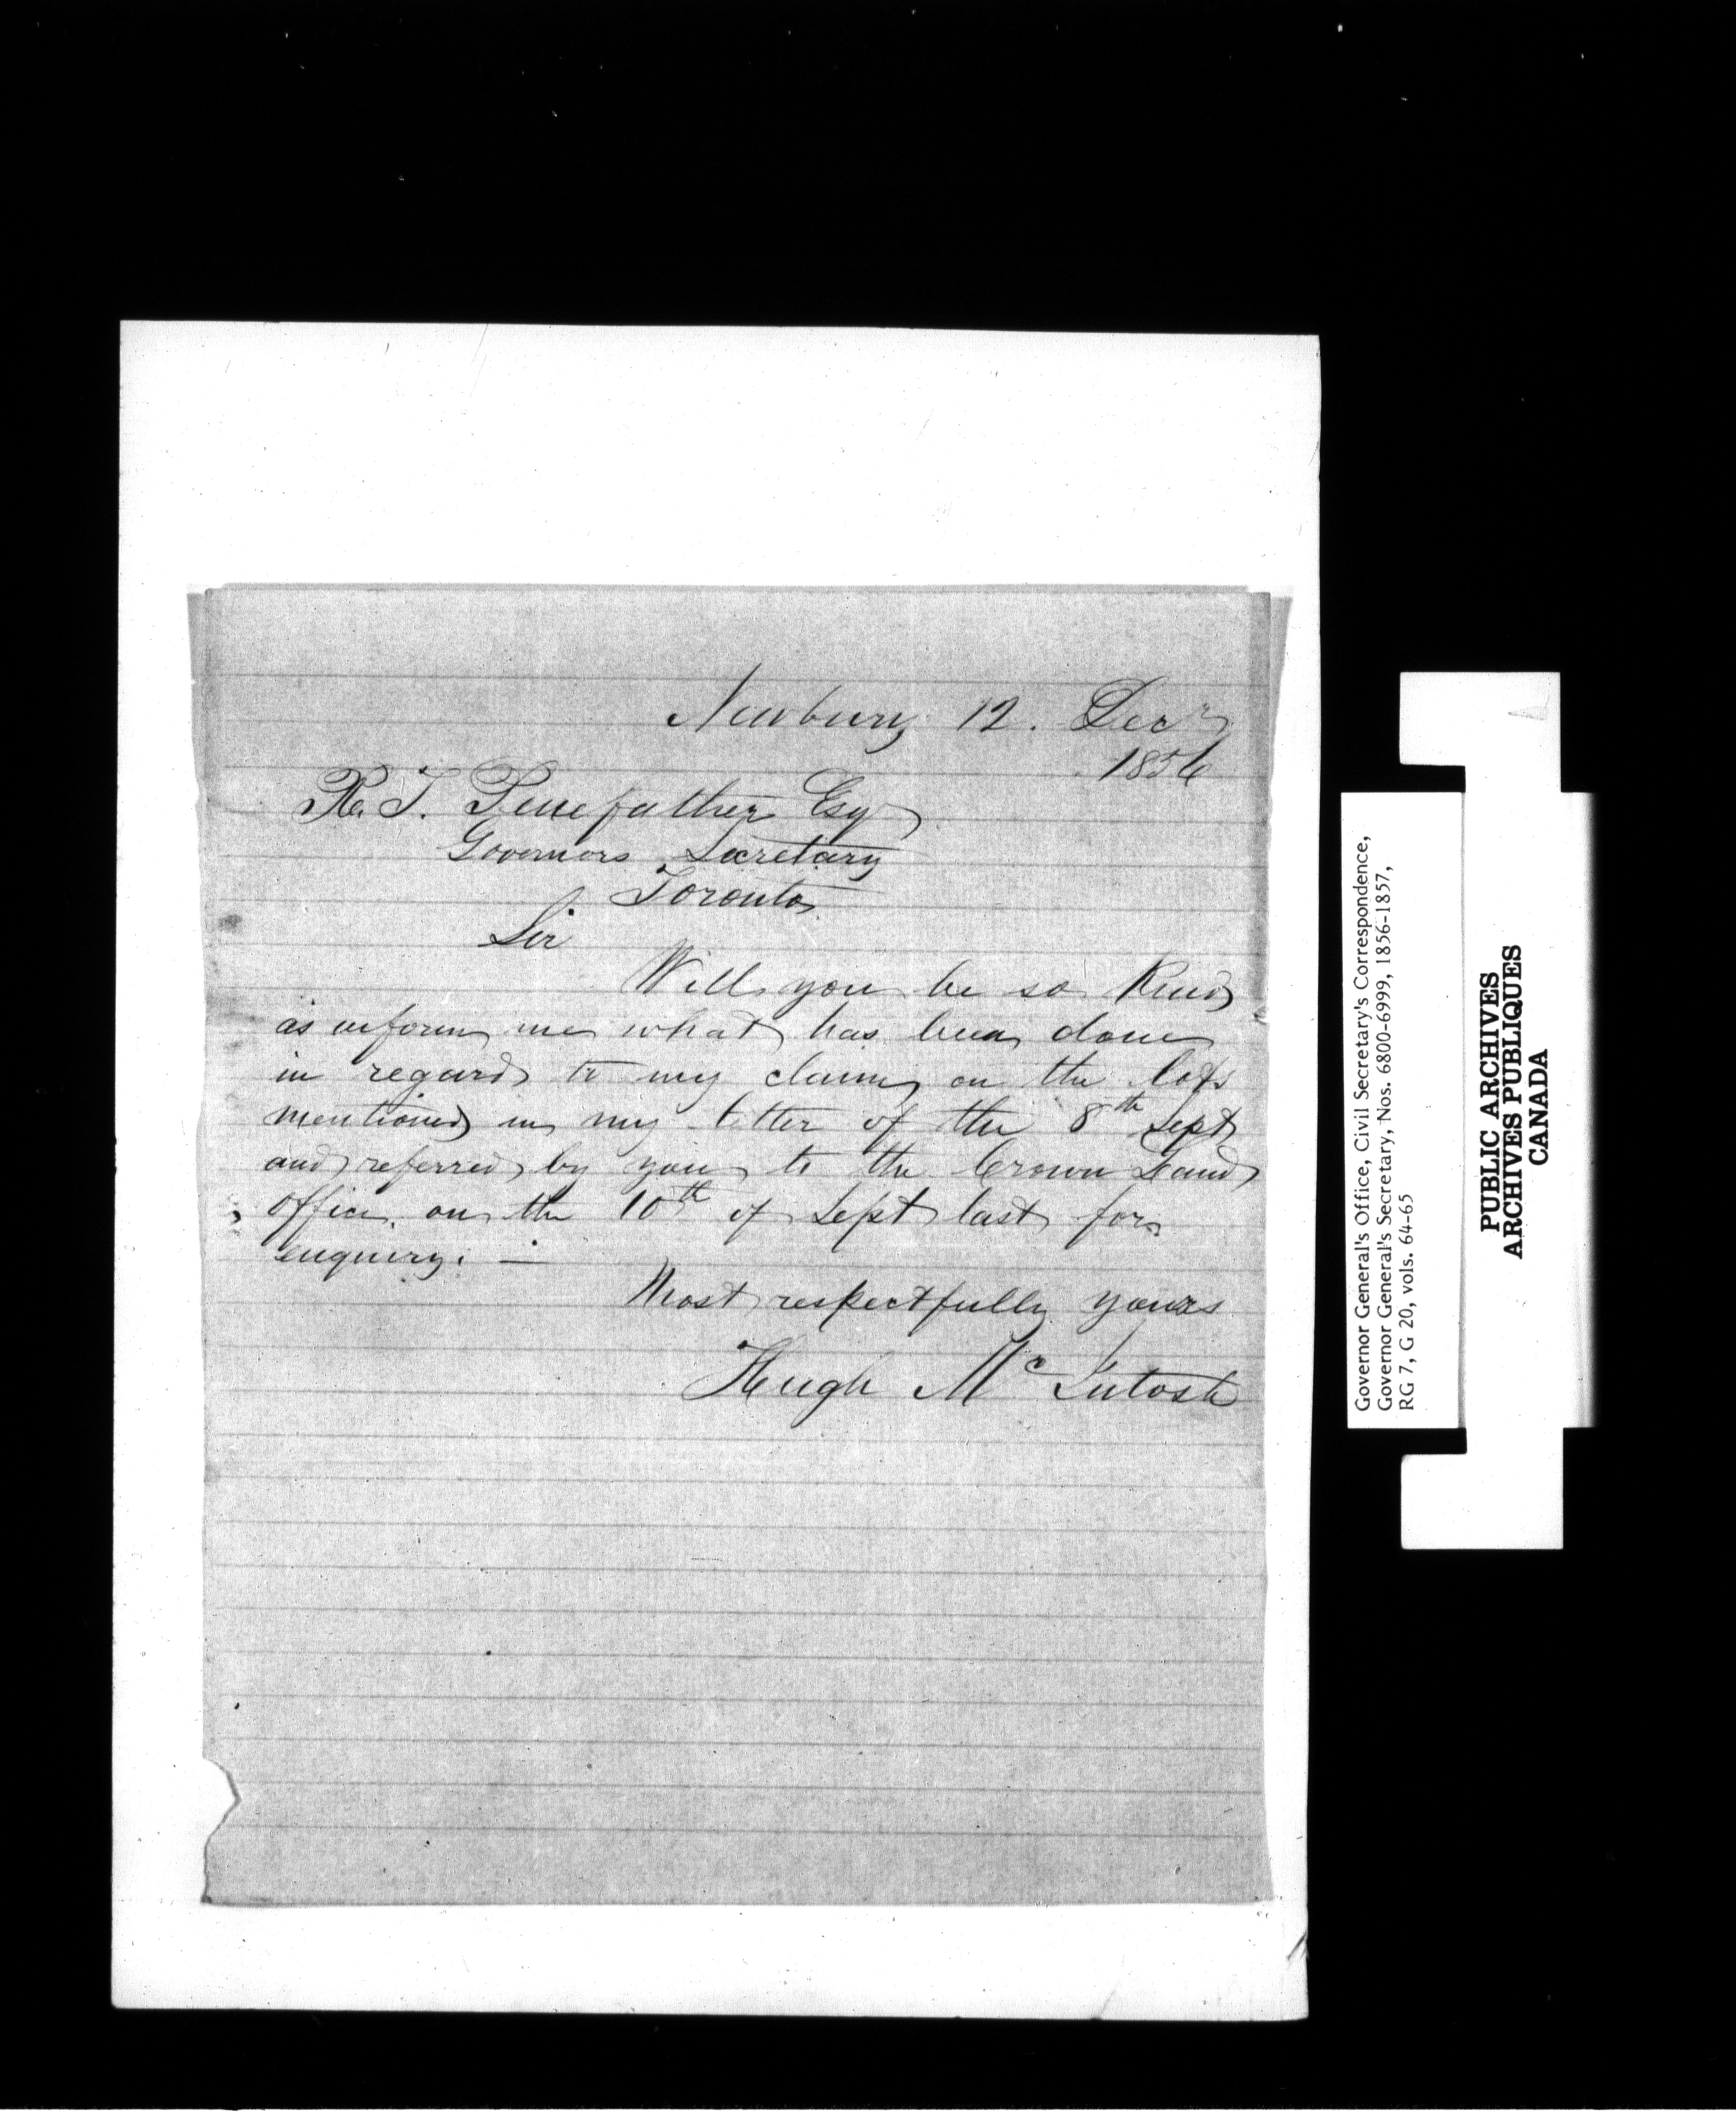 Newbury 12. Decr
1856
R. T. Penefather Esq
Governors Secretary
Toronto
Sir
Will you be so Kind
as inform me what has been done
in regard to my claim on the lots
mentioned in my letter of the 8th Sept
and referred by you to the Crown Land
office on the 10th of Sept last for
enquiry. —
Most respectfully yours
Hugh Mc Intosh
Governor General's Office, Civil Secretary's Correspondence,
Governor General's Secretary, Nos. 6800-6999, 1856-1857,
RG 7, G 20, vols. 64-65
PUBLIC ARCHIVES
ARCHIVES PUBLIQUES
CANADA